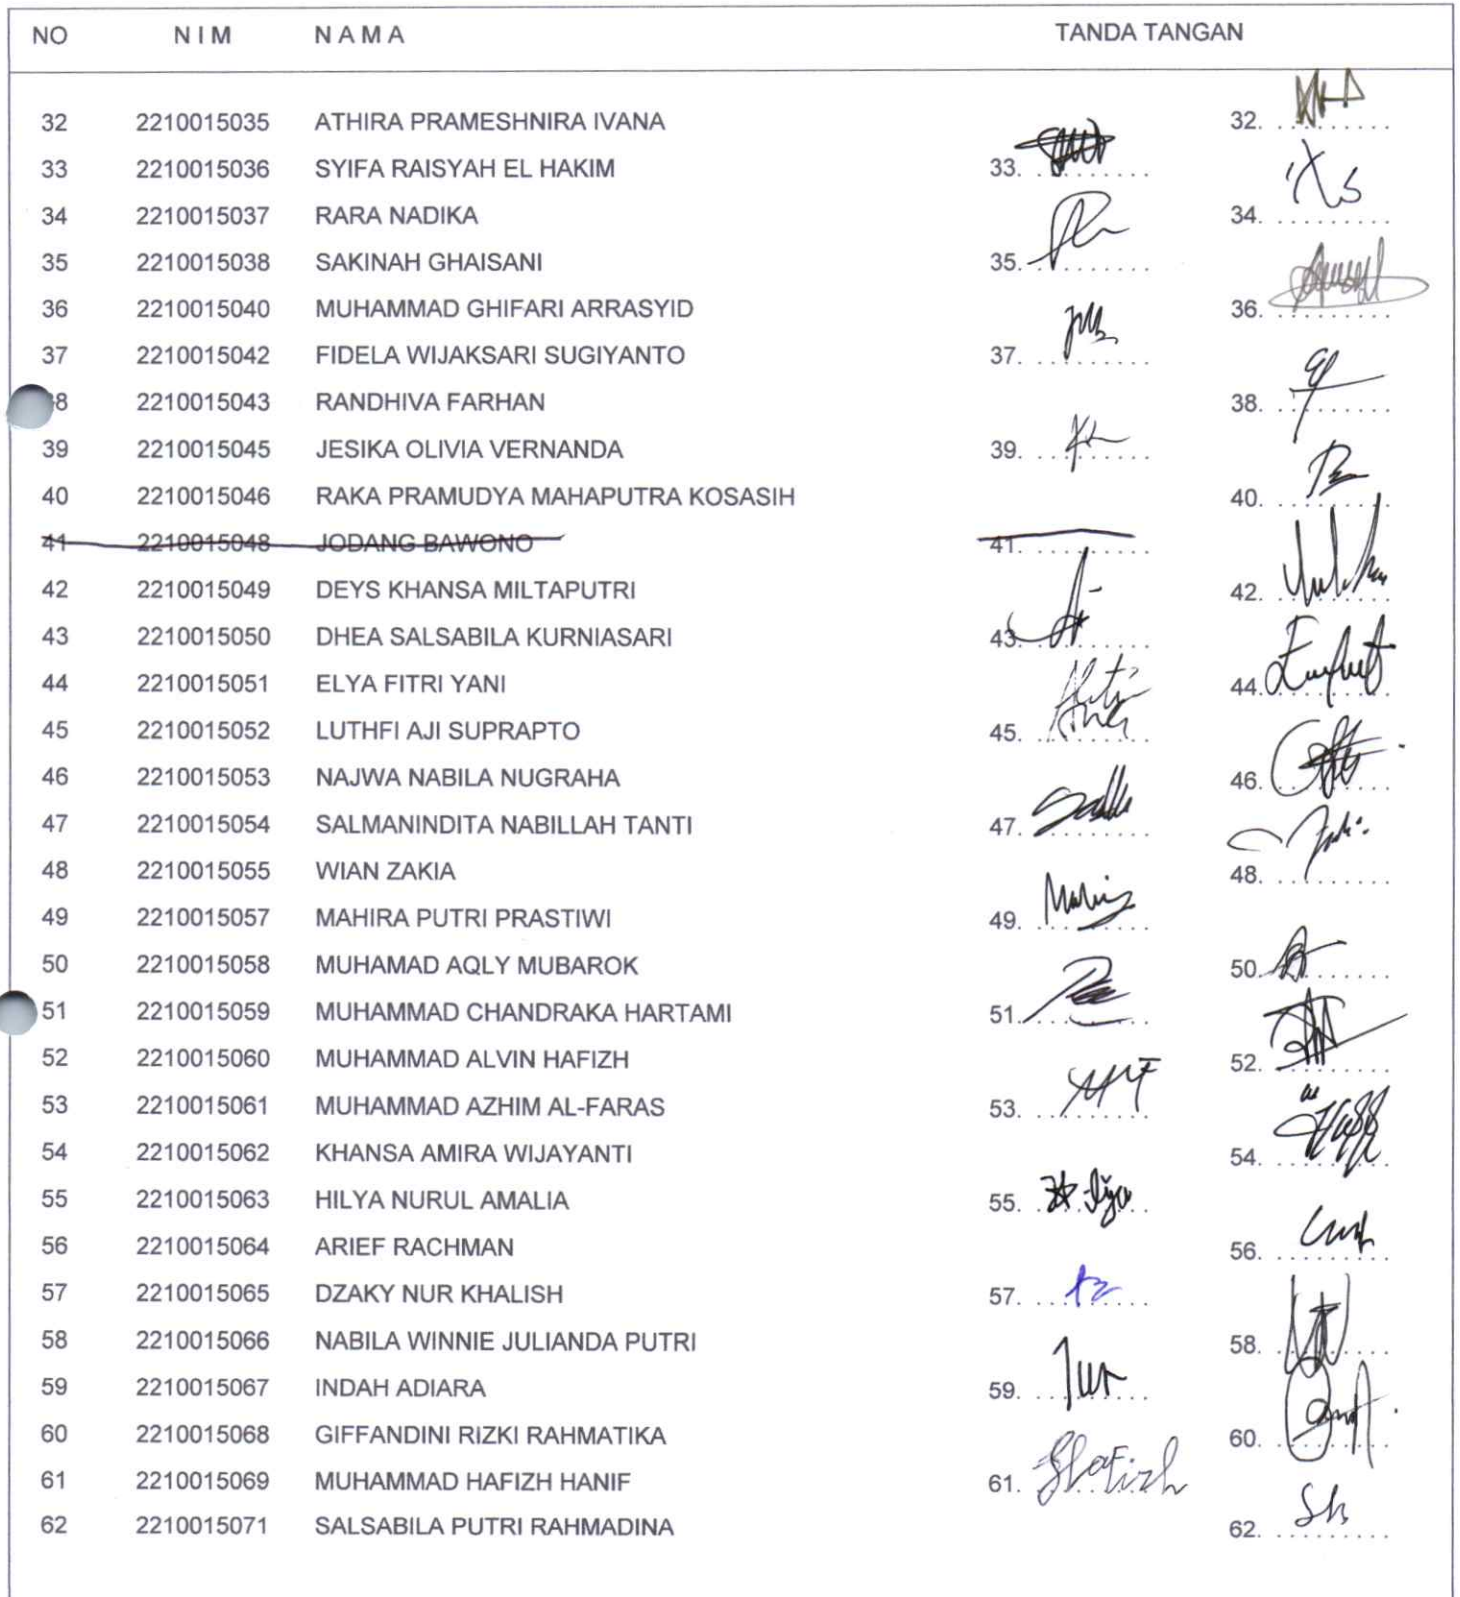 NO NIM NAMA TANDA TANGAN
32 2210015035 ATHIRA PRAMESHNIRA IVANA 32. ..........
33 2210015036 SYIFA RAISYAH EL HAKIM 33. ..........
34 2210015037 RARA NADIKA 34. ..........
35 2210015038 SAKINAH GHAISANI 35. ..........
36 2210015040 MUHAMMAD GHIFARI ARRASYID 36. ..........
37 2210015042 FIDELA WIJAKSARI SUGIYANTO 37. ..........
38 2210015043 RANDHIVA FARHAN 38. ..........
39 2210015045 JESIKA OLIVIA VERNANDA 39. ..........
40 2210015046 RAKA PRAMUDYA MAHAPUTRA KOSASIH 40. ..........
41 2210015048 JODANG BAWONO 41. ..........
42 2210015049 DEYS KHANSA MILTAPUTRI 42. ..........
43 2210015050 DHEA SALSABILA KURNIASARI 43. ..........
44 2210015051 ELYA FITRI YANI 44. ..........
45 2210015052 LUTHFI AJI SUPRAPTO 45. ..........
46 2210015053 NAJWA NABILA NUGRAHA 46. ..........
47 2210015054 SALMANINDITA NABILLAH TANTI 47. ..........
48 2210015055 WIAN ZAKIA 48. ..........
49 2210015057 MAHIRA PUTRI PRASTIWI 49. ..........
50 2210015058 MUHAMAD AQLY MUBAROK 50. ..........
51 2210015059 MUHAMMAD CHANDRAKA HARTAMI 51. ..........
52 2210015060 MUHAMMAD ALVIN HAFIZH 52. ..........
53 2210015061 MUHAMMAD AZHIM AL-FARAS 53. ..........
54 2210015062 KHANSA AMIRA WIJAYANTI 54. ..........
55 2210015063 HILYA NURUL AMALIA 55. ..........
56 2210015064 ARIEF RACHMAN 56. ..........
57 2210015065 DZAKY NUR KHALISH 57. ..........
58 2210015066 NABILA WINNIE JULIANDA PUTRI 58. ..........
59 2210015067 INDAH ADIARA 59. ..........
60 2210015068 GIFFANDINI RIZKI RAHMATIKA 60. ..........
61 2210015069 MUHAMMAD HAFIZH HANIF 61. Hafizh
62 2210015071 SALSABILA PUTRI RAHMADINA 62. ..........